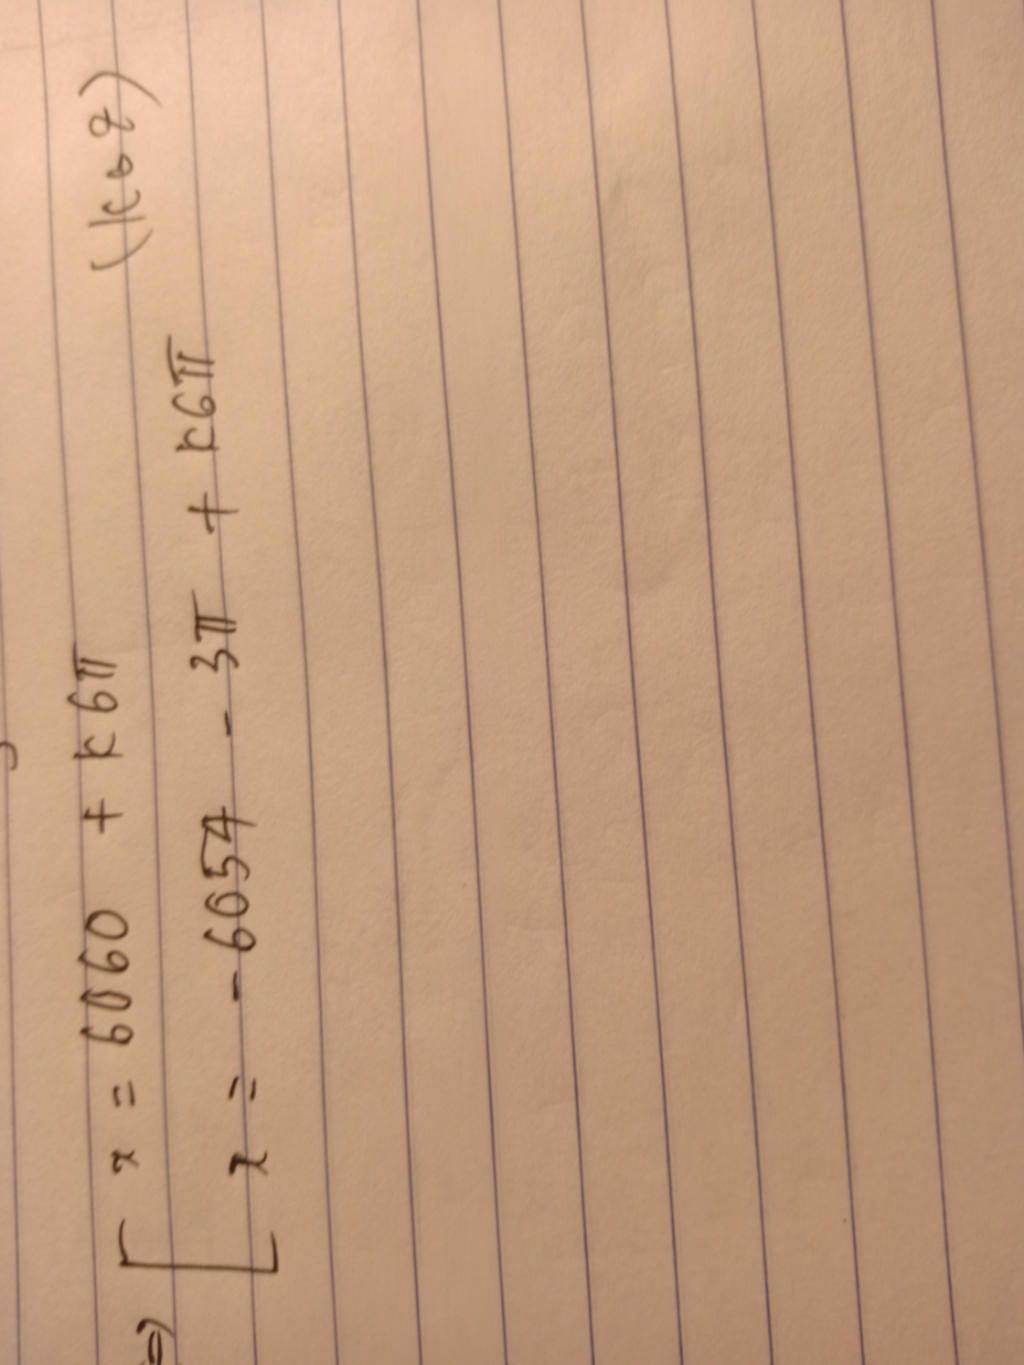 ⇒ [ x = 6060 + k6π (k∈Z)
x = -6054 - 3π + k6π